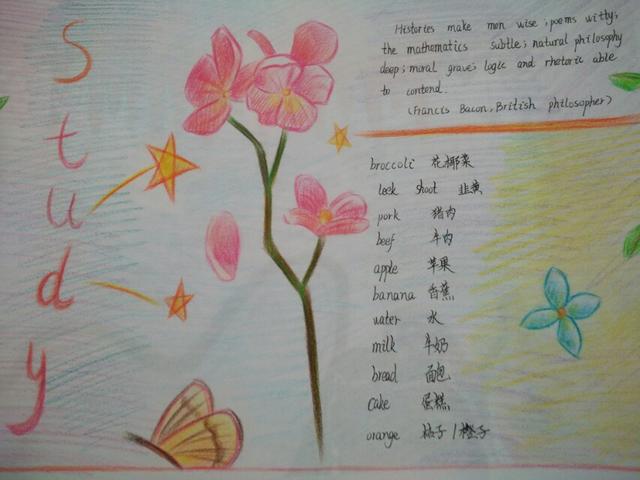 Study
Histories make men wise; poems witty;
the mathematics subtle; natural philosophy
deep; moral grave; logic and rhetoric able
to contend.
(Francis Bacon, British philosopher)
broccoli 花椰菜
leek shoot 韭黄
pork 猪肉
beef 牛肉
apple 苹果
banana 香蕉
water 水
milk 牛奶
bread 面包
cake 蛋糕
orange 桔子/橙子